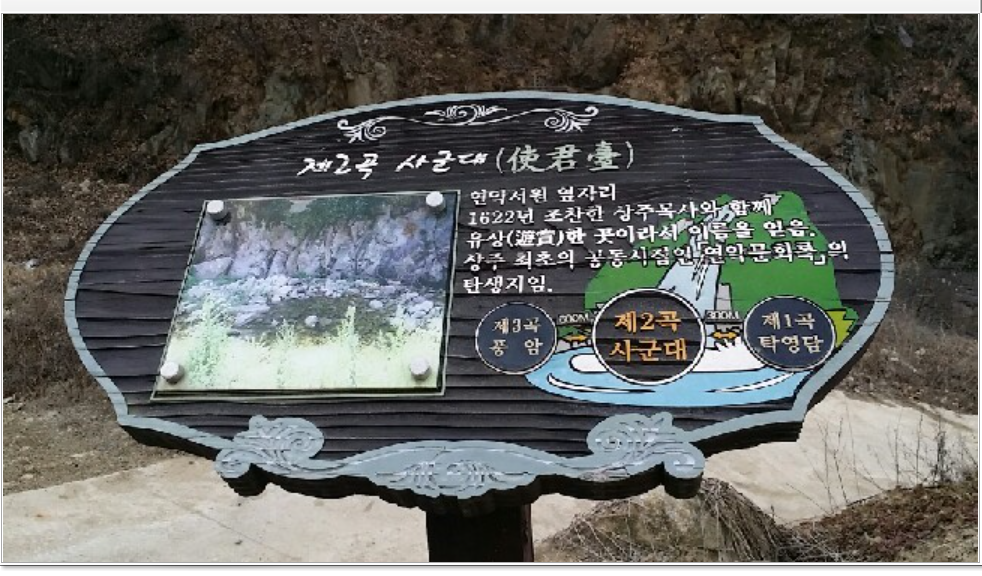 제2곡 사군대(使君臺)
연악서원 옆자리
1622년 조찬한 상주목사와 함께
유상(遊賞)한 곳이라서 이름을 얻음.
상주 최초의 공동시집인 「연악문회록」의
탄생지임.
제3곡
풍 암
600M
제2곡
사군대
300M
제1곡
탁영담